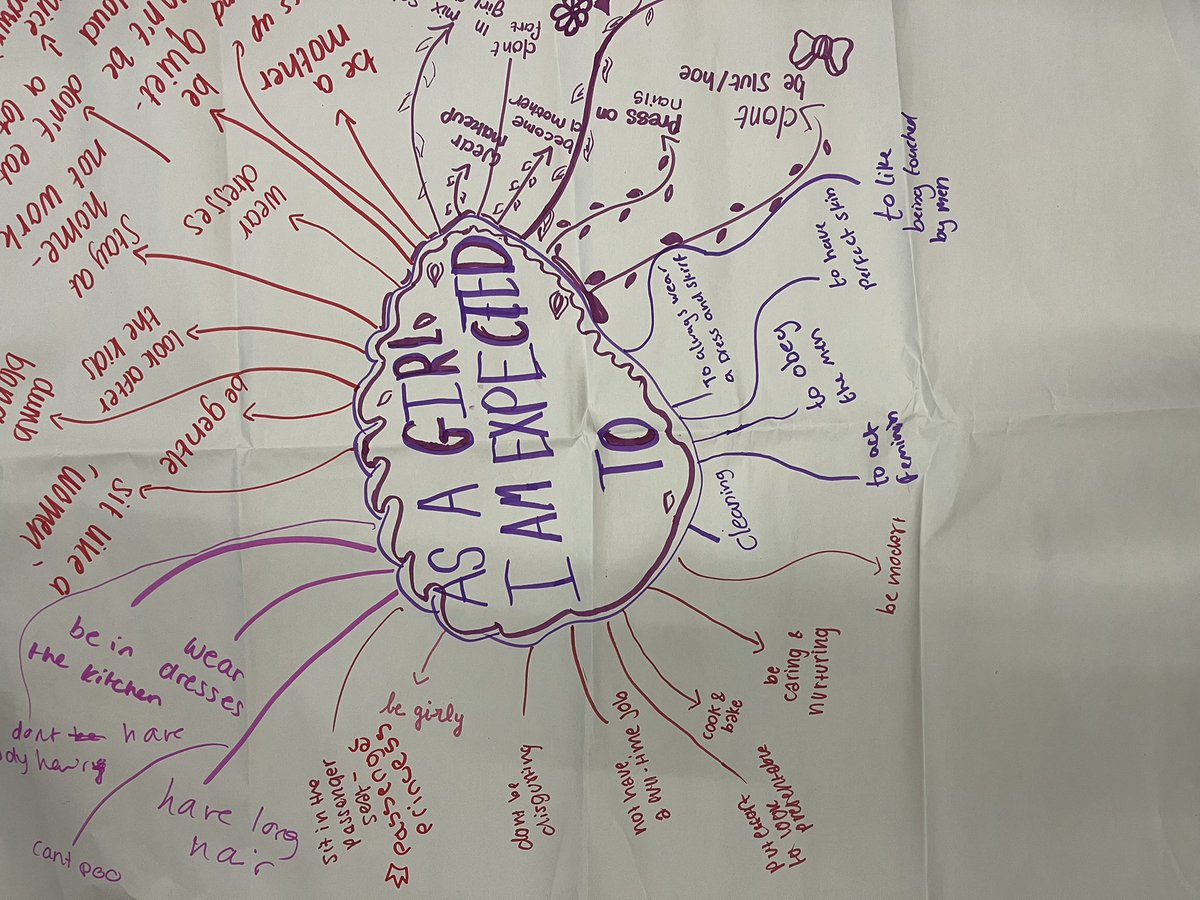 AS A GIRL
I AM EXPECTED
TO
be a
mother
be
quiet-
don't be
loud
don't eat
a lot
wear
dresses
stay at
home-
not work
look after
the kids
dumb
be gentle
sit like a
'women'
be in
the kitchen
wear
dresses
dont have
cant poo
have long
hair
sit in the
passanger
seat-
passenge
princess
be girly
dont be
disgusting
not have
a full-time job
cook &
bake
put effort
to look
presentable
be
caring &
nurturing
be modest
Cleaning
to act
feminin
to obey
the men
To always wear
a Dress and skirt
to have
perfect skin
to like
being touched
by men
dont
be slut/hoe
Press on
nails
become
a mother
wear
makeup
dont
fart in